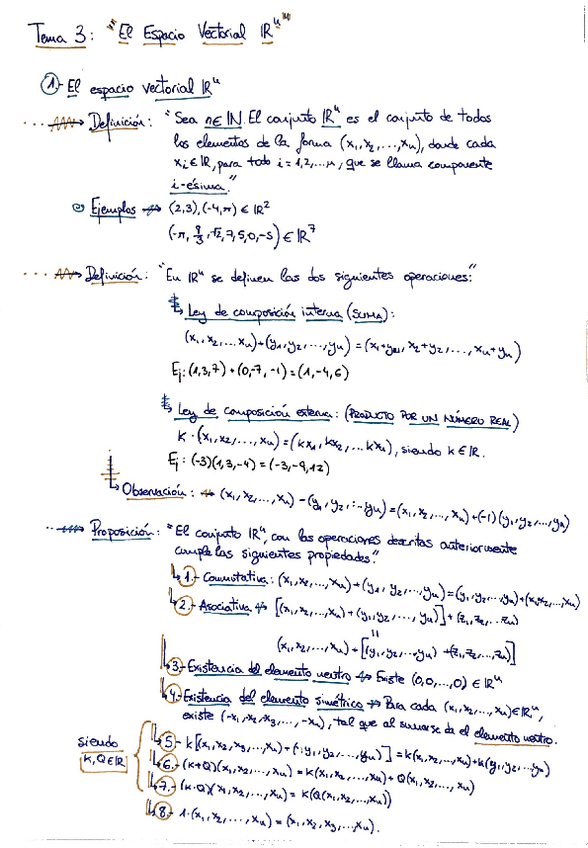 Tema 3: "El Espacio Vectorial ℝⁿ"
1.- El espacio vectorial ℝⁿ
Definición: "Sea n∈ℕ. El conjunto ℝⁿ es el conjunto de todos
los elementos de la forma (x₁,x₂,...,xₙ), donde cada
xᵢ∈ℝ, para todo i=1,2,...n, que se llama componente
i-ésima."
Ejemplos → (2,3),(-4,π) ∈ ℝ²
(-π, 8/3, √2, 7, 5, 0, -5) ∈ ℝ⁷
Definición: "En ℝⁿ se definen las dos siguientes operaciones:"
Ley de composición interna (SUMA):
(x₁,x₂,...xₙ)+(y₁,y₂,...,yₙ)=(x₁+y₁, x₂+y₂,..., xₙ+yₙ)
Ej: (1,3,7)+(0,-7,-1)=(1,-4,6)
Ley de composición externa: (PRODUCTO POR UN NÚMERO REAL)
K·(x₁,x₂,...,xₙ)=(kx₁,kx₂,...kxₙ), siendo k∈ℝ.
Ej: (-3)(1,3,-4)=(-3,-9,12)
Observación: → (x₁,x₂,...,xₙ)-(y₁,y₂,...yₙ)=(x₁,x₂,...,xₙ)+(-1)(y₁,y₂,...,yₙ)
Proposición: "El conjunto ℝⁿ, con las operaciones descritas anteriormente
cumple las siguientes propiedades:"
1.- Conmutativa: (x₁,x₂,...,xₙ)+(y₁,y₂,...,yₙ)=(y₁,y₂,...,yₙ)+(x₁,x₂,...,xₙ)
2.- Asociativa ↔ [(x₁,x₂,...,xₙ)+(y₁,y₂,...,yₙ)]+(z₁,z₂,...zₙ)
=
(x₁,x₂,...,xₙ)+[(y₁,y₂,...,yₙ)+(z₁,z₂,...,zₙ)]
3.- Existencia del elemento neutro ↔ Existe (0,0,...,0) ∈ ℝⁿ
4.- Existencia del elemento simétrico → Para cada (x₁,x₂,...,xₙ)∈ℝⁿ,
existe (-x₁,-x₂,-x₃,...,-xₙ), tal que al sumarse da el elemento neutro.
siendo
K,Q∈ℝ
5.- k[(x₁,x₂,x₃,...,xₙ)+(y₁,y₂,...,yₙ)]=k(x₁,x₂,...,xₙ)+k(y₁,y₂,...yₙ)
6.- (k+Q)(x₁,x₂,...,xₙ)=k(x₁,x₂,...,xₙ)+Q(x₁,x₂,...,xₙ)
7.- (k·Q)(x₁,x₂,...,xₙ)=k(Q(x₁,x₂,...,xₙ))
8.- 1·(x₁,x₂,...,xₙ)=(x₁,x₂,x₃,...,xₙ).